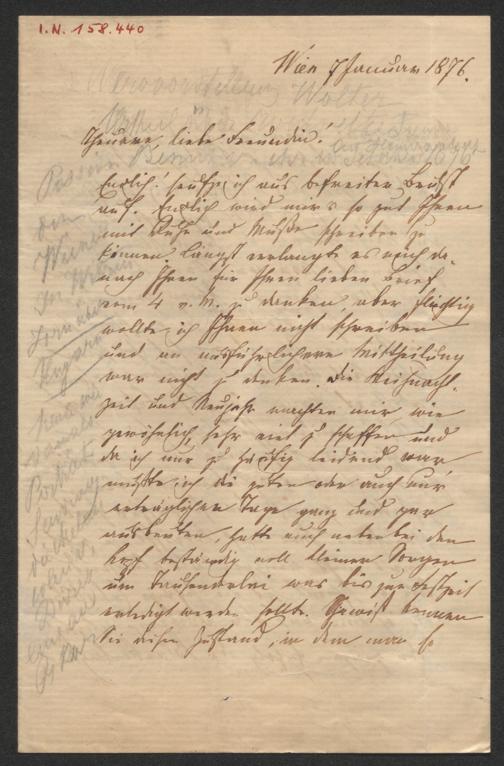 I.N. 158.440
Wien 7 Januar 1876.
Theuere, liebe Freundin!
Endlich! seufze ich aus befreiter Brust
auf. Endlich wird mir's so gut Ihnen
mit Ruhe und Muße schreiben zu
können. Längst verlangte es mich da-
nach Ihnen für Ihren lieben Brief
vom 4 v. M. zu danken, aber flüchtig
wollte ich Ihnen nicht schreiben
und an ausführlichere Mittheilung
war nicht zu denken. Die Weihnacht-
zeit und Neujahr machten mir wie
gewöhnlich, sehr viel zu schaffen und
da ich nur zu häufig leidend war
mußte ich die guten oder auch nur
erträglichen Tage ganz und gar
ausbeuten, hatte auch nebenbei den
Kopf beständig voll kleiner Sorgen
um Tausenderlei was bis zur Festzeit
erledigt werden sollte. Gewiß kennen
Sie diesen Zustand, in dem man so
Wolter
Porträt